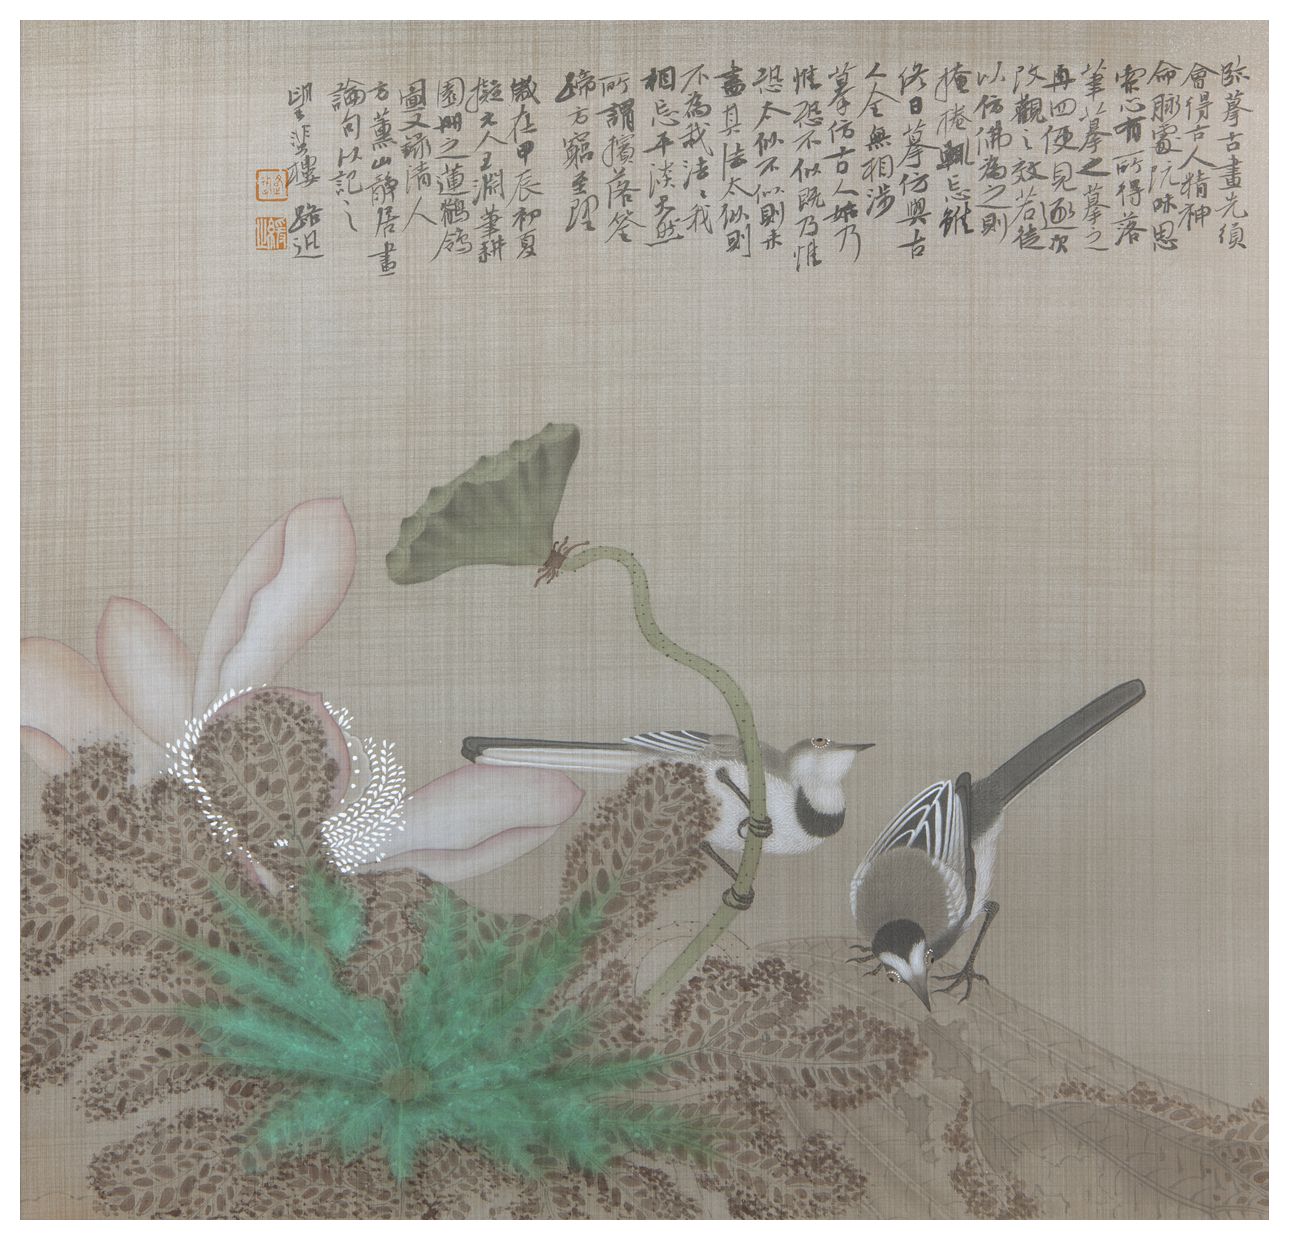 臨摹古畫先須
會得古人精神
命脈處玩味思
索心有所得落
筆摹之摹之
再四便見逐次
改觀之效若徒
以仿佛為之則
掩捲輒忘雖
終日摹仿與古
人全無相涉
摹仿古人始乃
惟恐不似既乃惟
恐太似不似則未
盡其法太似則
不為我法法我
相忘平淡天然
所謂擯落筌
蹄方窮至理
歲在甲辰初夏
擬元人王淵筆耕
園冊之蓮鶺鴒
圖又錄清人
方薰山靜居畫
論句以記之